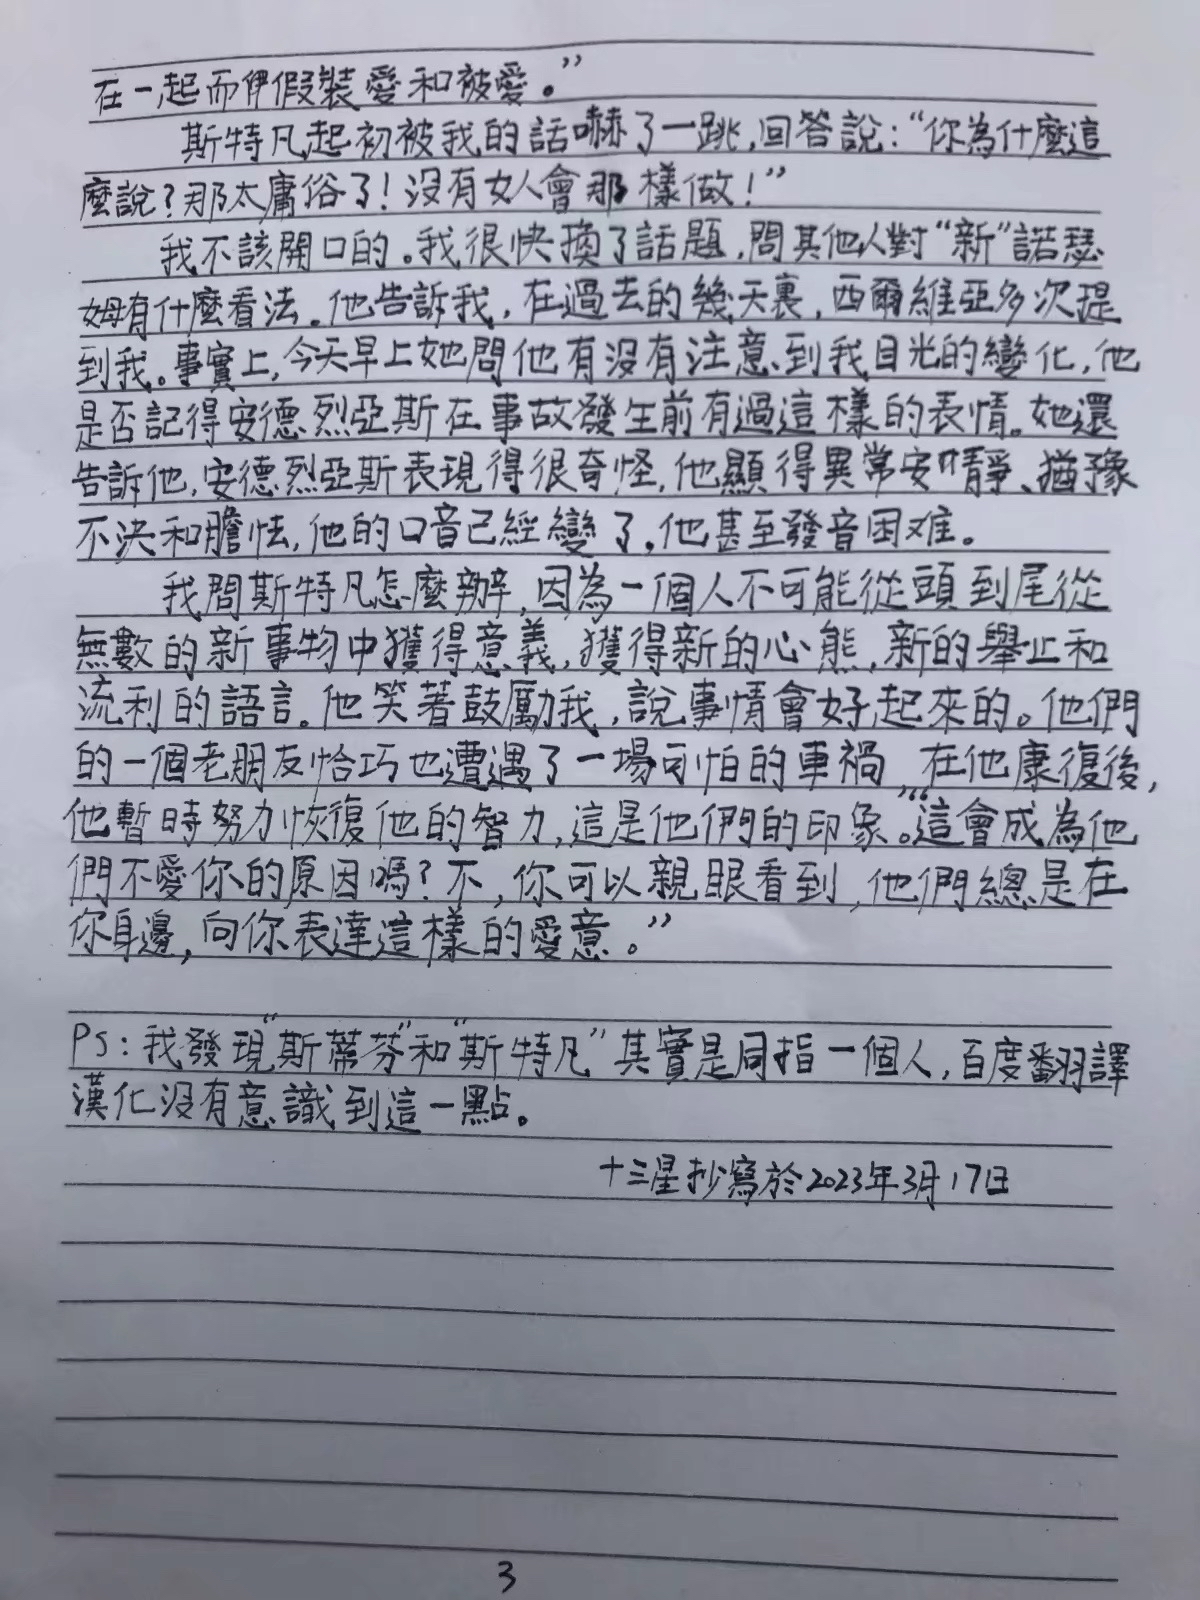 在一起而伊假裝愛和被愛。”
斯特凡起初被我的話嚇了一跳,回答說:“你為什麼這
麼說?那太庸俗了!沒有女人會那樣做!”
我不該開口的。我很快換了話題,問其他人對“新”諾瑟
姆有什麼看法。他告訴我,在過去的幾天裏,西爾維亞多次提
到我。事實上,今天早上她問他有沒有注意到我目光的變化,他
是否記得安德烈亞斯在事故發生前有過這樣的表情。她還
告訴他,安德烈亞斯表現得很奇怪,他顯得異常安靜、猶豫
不決和膽怯,他的口音已經變了,他甚至發音困难。
我問斯特凡怎麼辦,因為一個人不可能從頭到尾從
無數的新事物中獲得意義,獲得新的心態,新的舉止和
流利的語言。他笑著鼓勵我,說事情會好起來的。他們
的一個老朋友恰巧也遭遇了一場可怕的車禍,在他康復後,
他暫時努力恢復他的智力,這是他們的印象。“這會成為他
們不愛你的原因嗎?不,你可以親眼看到,他們總是在
你身邊,向你表達這樣的愛意。”
Ps:我發現“斯蒂芬”和“斯特凡”其實是同指一個人,百度翻譯
漢化沒有意識到這一點。
十三星抄寫於2023年3月17日
3